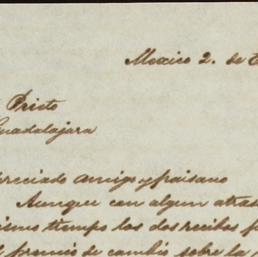 Mexico 2. de
Prieto
Guadalajara
preciado amigo y paisano
Aunque con algun atras
ismo tiempo los dos recibos
premio de cambio sobre la